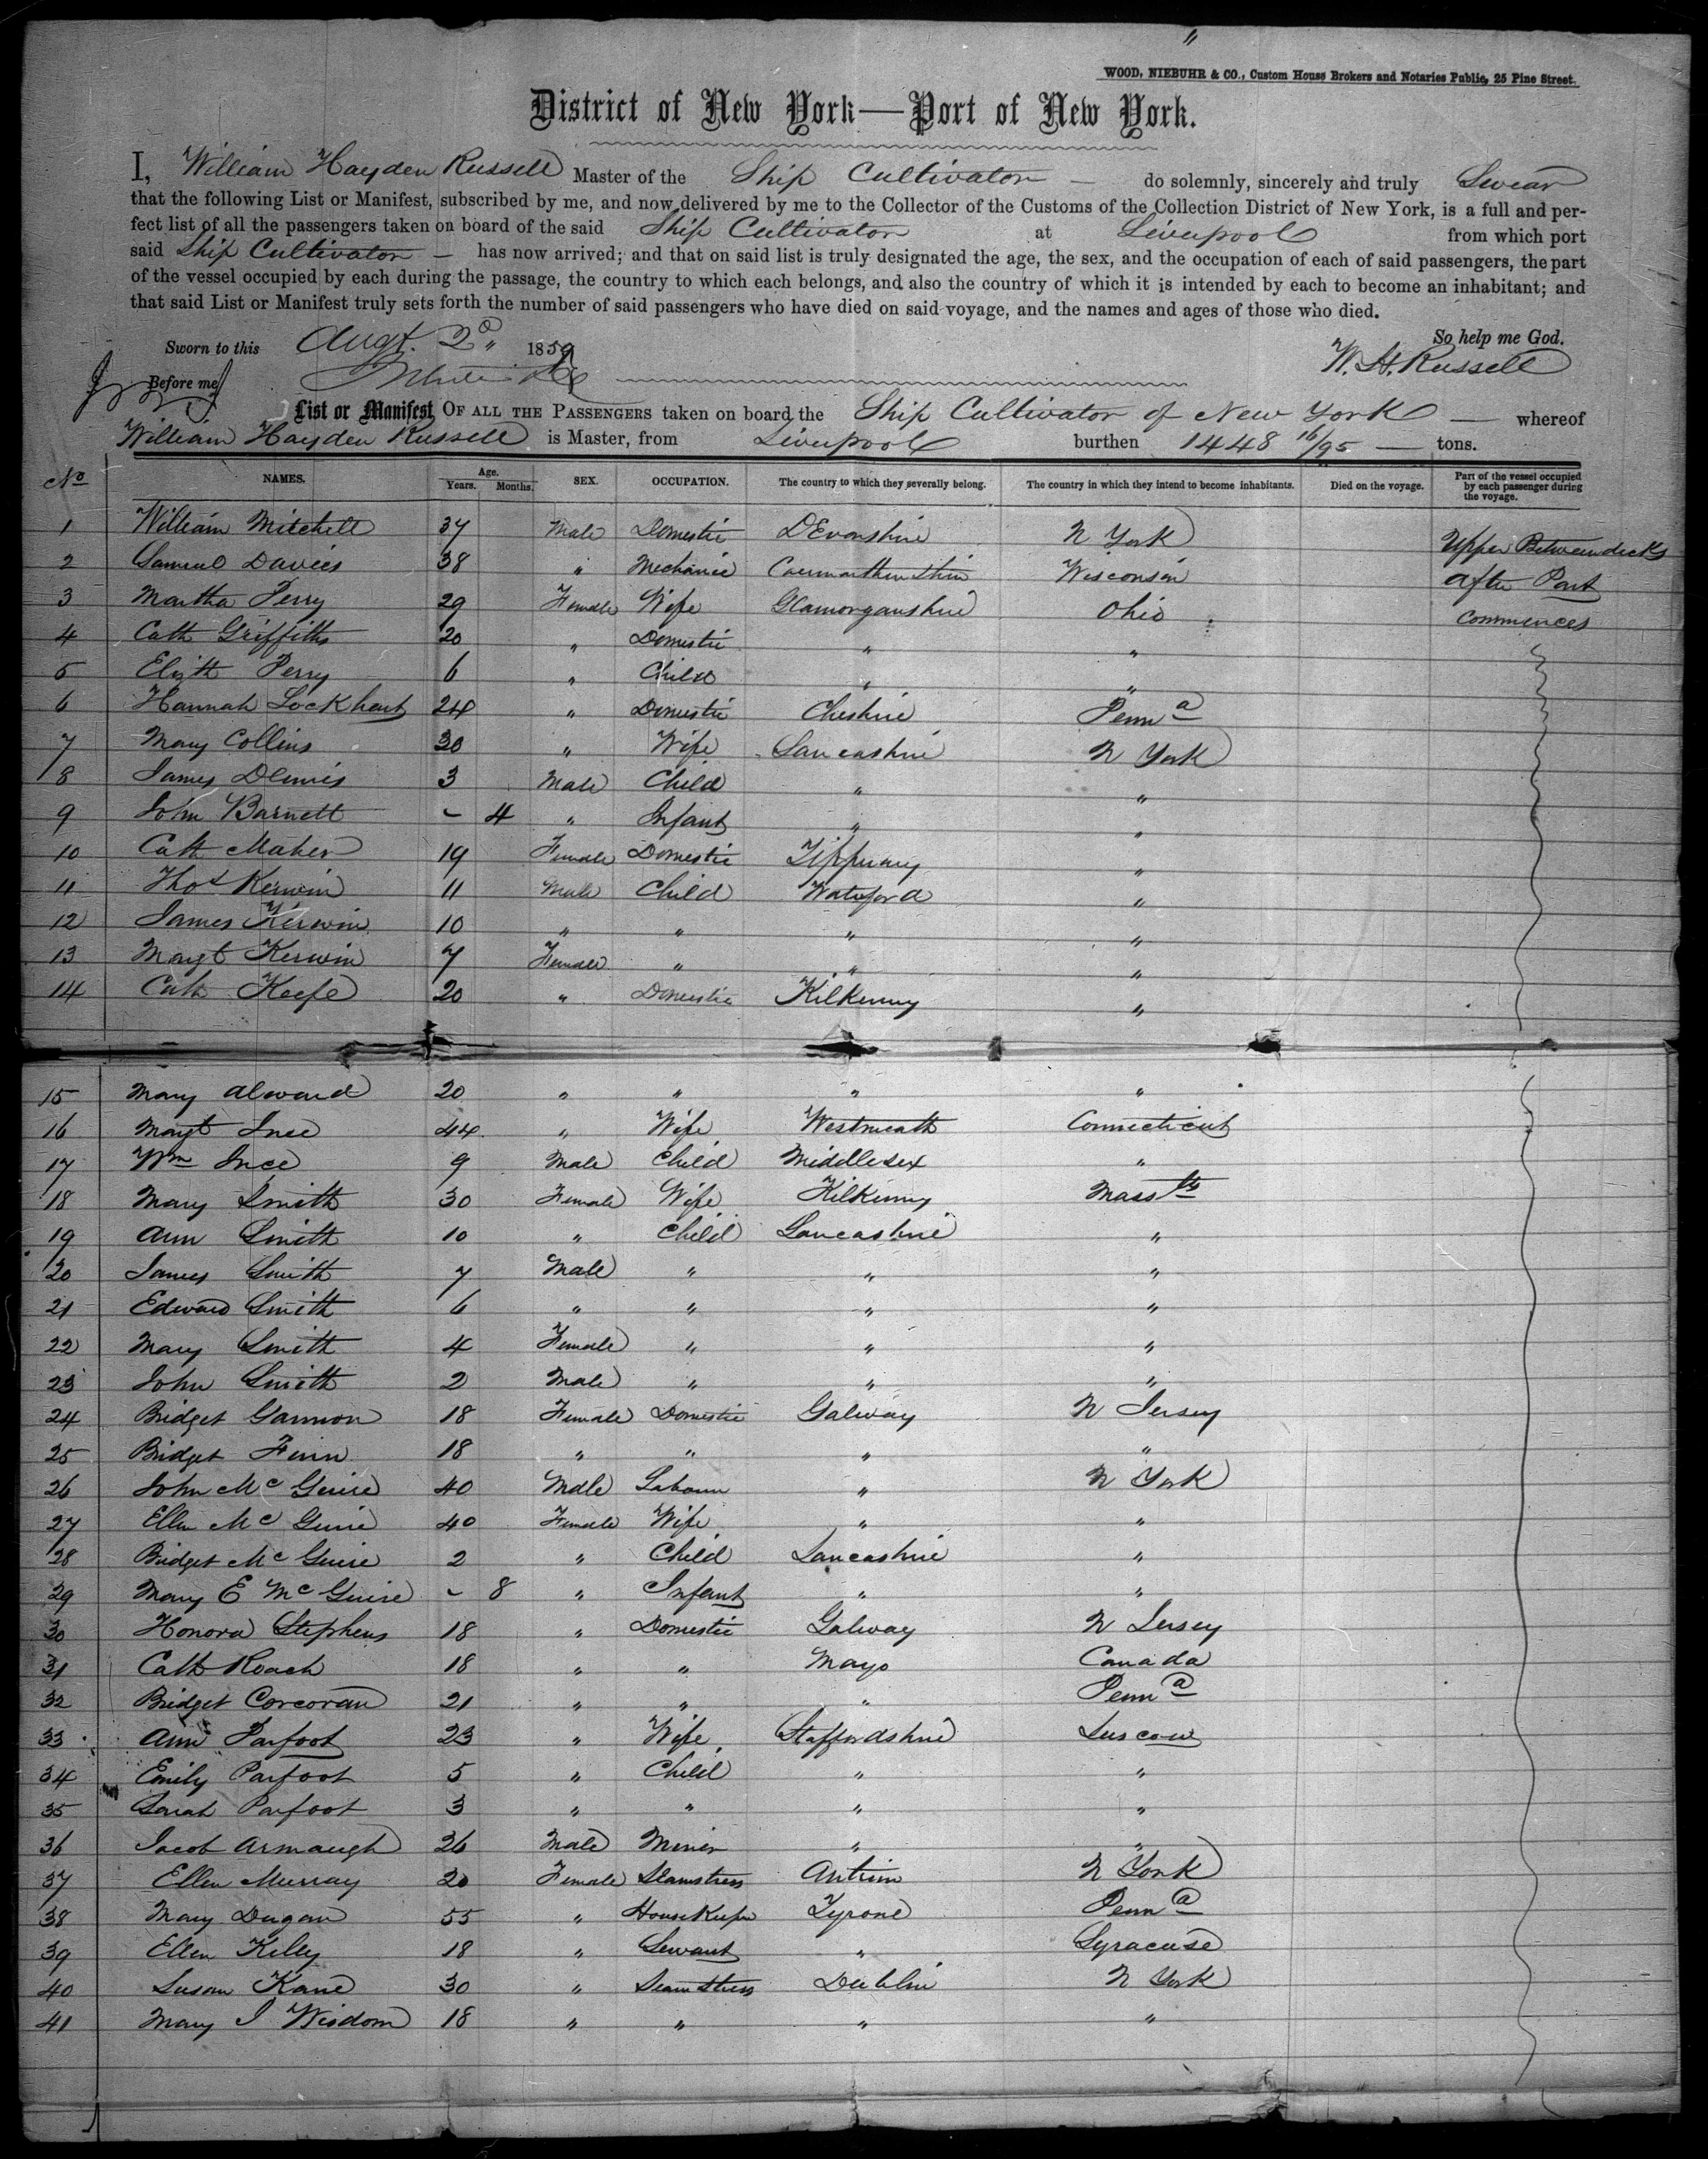 "
WOOD, NIEBUHR & CO., Custom House Brokers and Notaries Public, 25 Pine Street.
District of New York—Port of New York.
I, William Hayden Russell Master of the Ship Cultivator — do solemnly, sincerely and truly Swear
that the following List or Manifest, subscribed by me, and now delivered by me to the Collector of the Customs of the Collection District of New York, is a full and per-
fect list of all the passengers taken on board of the said Ship Cultivator at Liverpool from which port
said Ship Cultivator — has now arrived; and that on said list is truly designated the age, the sex, and the occupation of each of said passengers, the part
of the vessel occupied by each during the passage, the country to which each belongs, and also the country of which it is intended by each to become an inhabitant; and
that said List or Manifest truly sets forth the number of said passengers who have died on said voyage, and the names and ages of those who died.
Sworn to this Augt. 2 1859 So help me God.
Before me W. H. Russell
List or Manifest OF ALL THE PASSENGERS taken on board the Ship Cultivator of New York — whereof
William Hayden Russell is Master, from Liverpool burthen 1448 16/95 — tons.
No NAMES. Age. Years. Months. SEX. OCCUPATION. The country to which they severally belong. The country in which they intend to become inhabitants. Died on the voyage. Part of the vessel occupied by each passenger during the voyage.
1 William Mitchell 37 Male Domestic DEvonshire N York Upper Betweendecks
2 Samuel Davies 38 " Mechanic Caermarthenshire Wisconsin After Part
3 Martha Perry 29 Female Wife Glamorganshire Ohio Commences
4 Cath Griffiths 20 " Domestic " "
5 Elizth Perry 6 " Child " "
6 Hannah Lockhart 24 " Domestic Cheshire Penna
7 Mary Collins 30 " Wife Lancashire N York
8 James Dennis 3 Male Child " "
9 John Barnett - 4 " Infant " "
10 Cath Maher 19 Female Domestic Tipperary "
11 Thos Kerwin 11 Male Child Waterford "
12 James Kerwin 10 " " " "
13 Margt Kerwin 7 Female " " "
14 Cath Keefe 20 " Domestic Kilkenny "
15 Mary Alward 20 " " " "
16 Margt Ince 44 " Wife Westmeath Connecticut
17 Wm Ince 9 Male Child Middlesex "
18 Mary Smith 30 Female Wife Kilkenny Massts
19 Ann Smith 10 " Child Lancashire "
20 James Smith 7 Male " " "
21 Edward Smith 6 " " " "
22 Mary Smith 4 Female " " "
23 John Smith 2 Male " " "
24 Bridget Gannon 18 Female Domestic Galway N Jersey
25 Bridget Finn 18 " " " "
26 John McGuire 40 Male Labourer " N York
27 Ellen McGuire 40 Female Wife " "
28 Bridget McGuire 2 " Child Lancashire "
29 Mary E McGuire - 8 " Infant " "
30 Honora Stephens 18 " Domestic Galway N Jersey
31 Cath Roach 18 " " Mayo Canada
32 Bridget Corcoran 21 " " " Penna
33 Ann Parfoot 23 " Wife Staffordshire
34 Emily Parfoot 5 " Child " "
35 Sarah Parfoot 3 " " " "
36 Jacob Armaugh 26 Male Miner " "
37 Ellen Murray 20 Female Seamstress Antrim N York
38 Mary Dugan 55 " HouseKeeper Tyrone Penna
39 Ellen Kelly 18 " Servant " Syracuse
40 Susan Kane 30 " Seamstress Dublin N York
41 Mary J Wisdom 18 " " " "